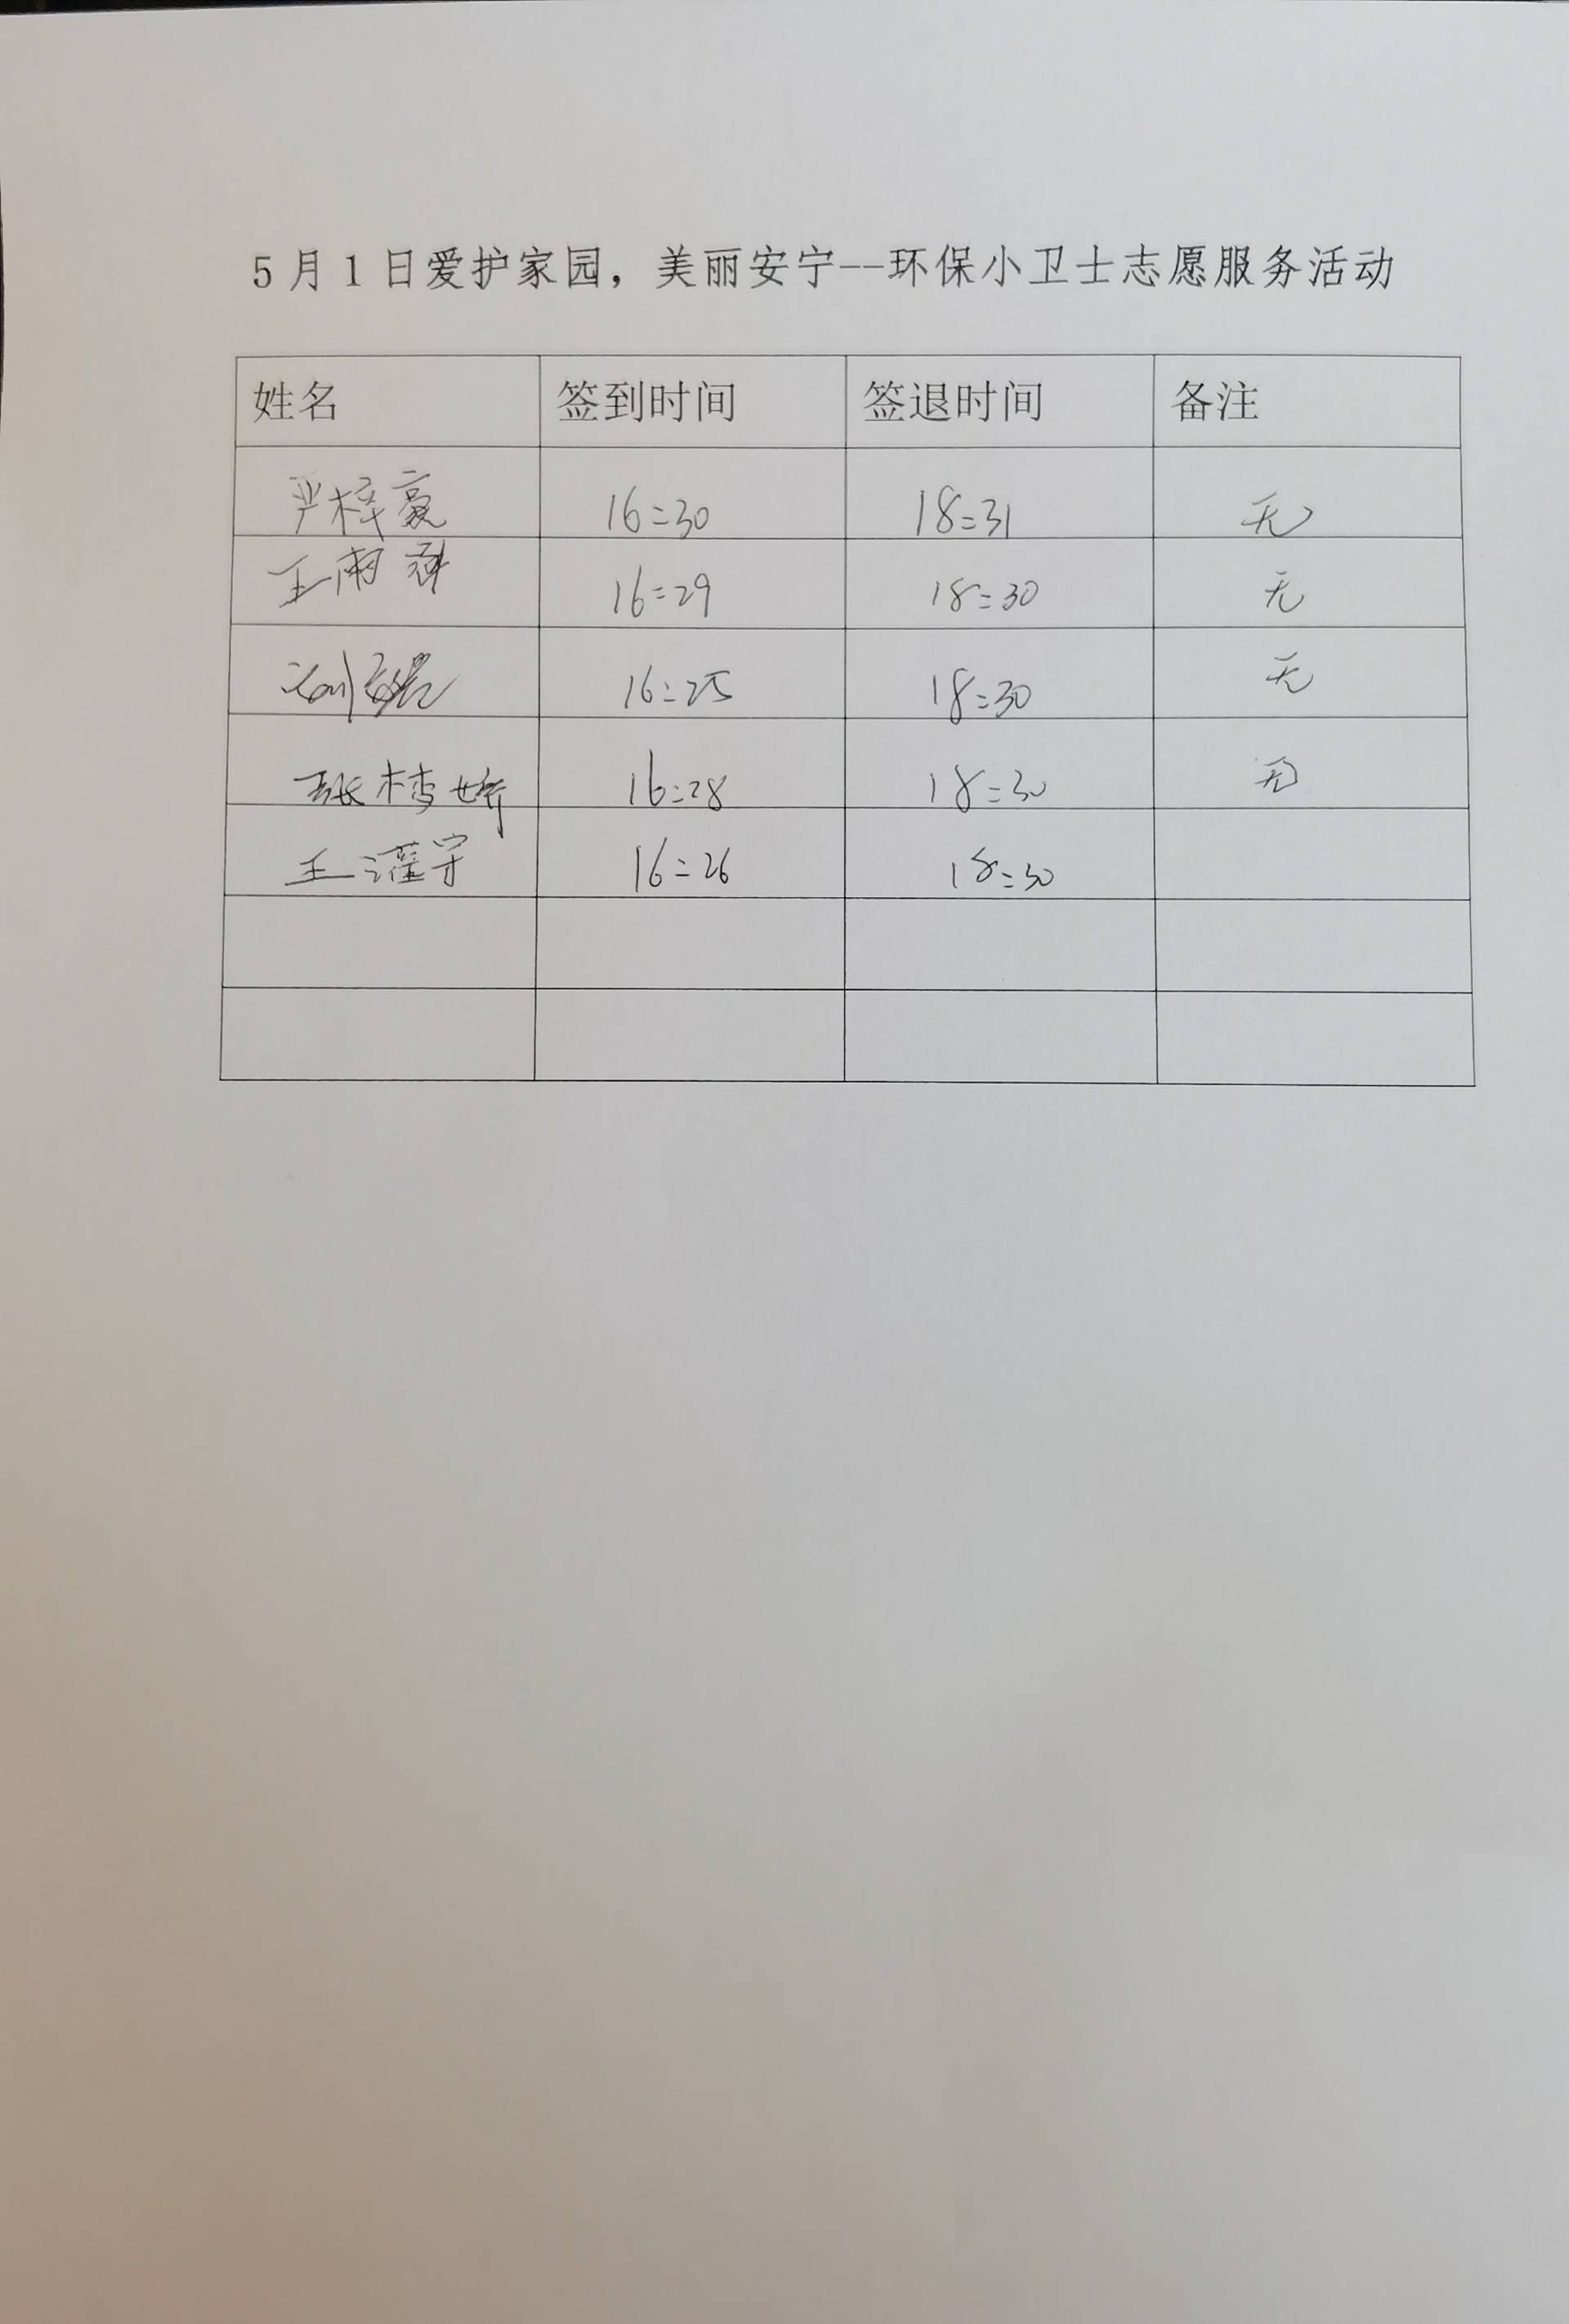 5月1日爱护家园，美丽安宁--环保小卫士志愿服务活动
姓名 签到时间 签退时间 备注
严梓豪 16:30 18:31 无
王雨 16:29 18:30 无
16:25 18:30 无
张楂娇 16:28 18:30 无
王灌宇 16:26 18:30